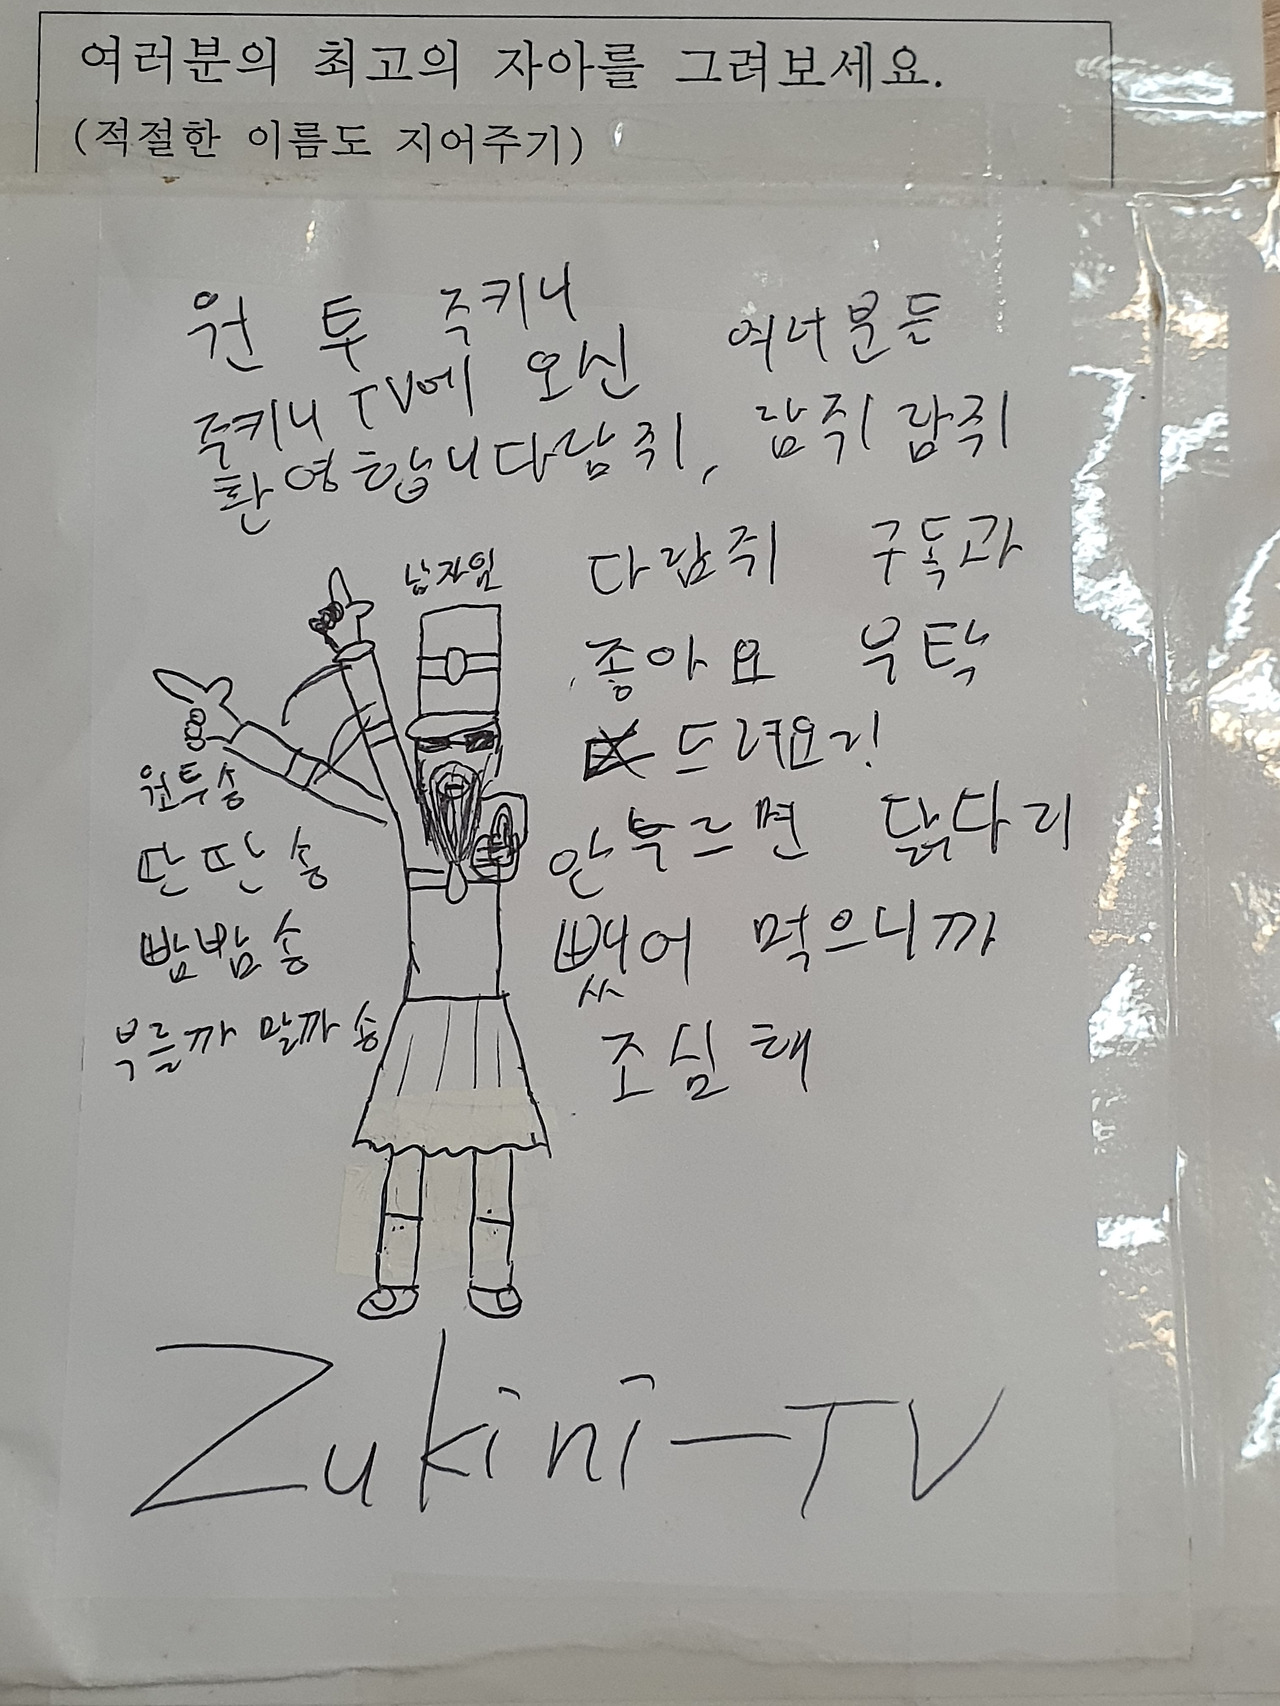 여러분의 최고의 자아를 그려보세요.
(적절한 이름도 지어주기)
원 투 주키니
주키니 TV에 오신 여너분든
환영합니다람쥐, 람쥐람쥐
다람쥐 구독과
좋아요 부탁
드려요기!
안부르면 닭다리
뺐어 먹으니까
조심해
남자임
원투송
단단송
밤밤송
부를까 말까 송
Zukini-TV